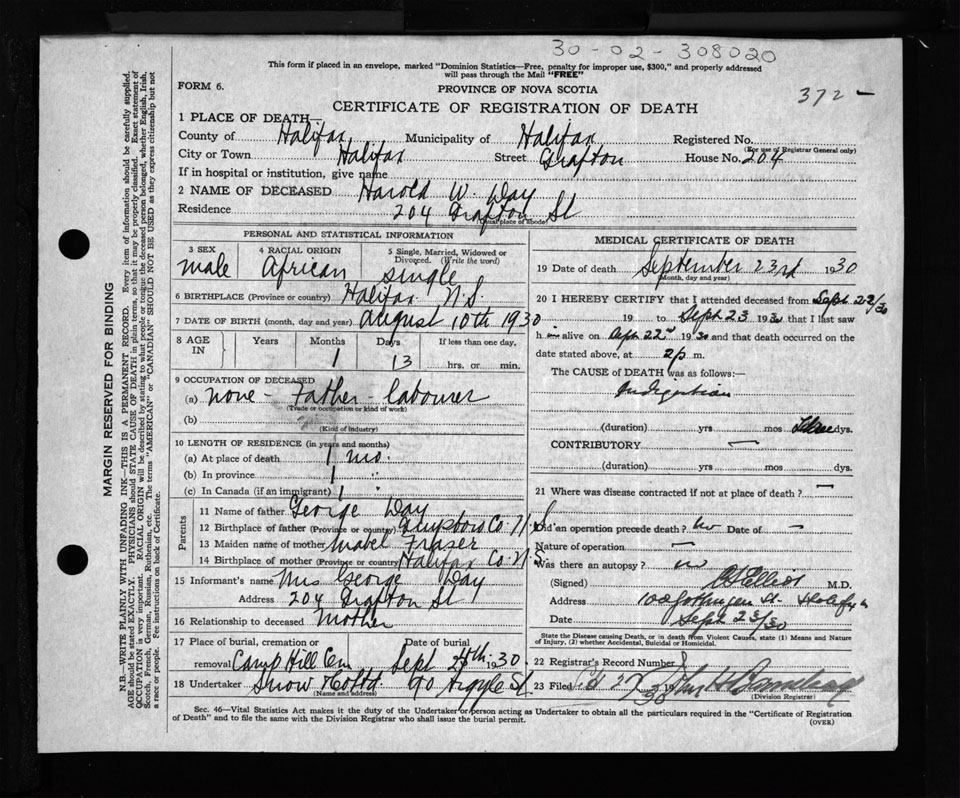 30-02-308020
This form if placed in an envelope, marked "Dominion Statistics—Free, penalty for improper use, $300," and properly addressed
will pass through the Mail "FREE"
FORM 6.
PROVINCE OF NOVA SCOTIA
372 -
CERTIFICATE OF REGISTRATION OF DEATH
1 PLACE OF DEATH—
County of Halifax Municipality of Halifax Registered No.
(For use of Registrar General only)
City or Town Halifax Street Grafton House No. 204
If in hospital or institution, give name
2 NAME OF DECEASED Harold W. Day
Residence 204 Grafton St
(Usual place of abode)
PERSONAL AND STATISTICAL INFORMATION
3 SEX male
4 RACIAL ORIGIN African
5 Single, Married, Widowed or Divorced. (Write the word) single
6 BIRTHPLACE (Province or country) Halifax N.S.
7 DATE OF BIRTH (month, day and year) August 10th 1930
8 AGE IN Years Months Days If less than one day,
1 13 hrs. or min.
9 OCCUPATION OF DECEASED
(a) none - Father - labourer
(Trade or occupation or kind of work)
(b)
(Kind of industry)
10 LENGTH OF RESIDENCE (in years and months)
(a) At place of death 1 mo.
(b) In province 1 "
(c) In Canada (if an immigrant) 1 "
Parents
11 Name of father George Day
12 Birthplace of father (Province or country) Guysboro Co. N.S
13 Maiden name of mother Mabel Fraser
14 Birthplace of mother (Province or country) Halifax Co. N.S.
15 Informant's name Mrs George Day
Address 204 Grafton St
16 Relationship to deceased Mother
17 Place of burial, cremation or removal Camp Hill Cem Date of burial Sept 25th 1930
18 Undertaker Snow & Co Ltd 90 Argyle St.
(Name and address)
MEDICAL CERTIFICATE OF DEATH
19 Date of death September 23rd 1930
(Month, day and year)
20 I HEREBY CERTIFY that I attended deceased from Sept 22/30
19 to Sept 23 1930 that I last saw
h im alive on 22nd 1930 and that death occurred on the
date stated above, at 2 p m.
The CAUSE of DEATH was as follows:—
Indigestion
(duration) yrs mos dys.
CONTRIBUTORY —
(duration) yrs. mos. dys.
21 Where was disease contracted if not at place of death? —
Did an operation precede death? no Date of —
Nature of operation —
Was there an autopsy? no
(Signed) Elliot M.D.
Address Gottingen St. Halifax
Date Sept 23/30
State the Disease causing Death, or in death from Violent Causes, state (1) Means and Nature
of Injury, (2) whether Accidental, Suicidal or Homicidal.
22 Registrar's Record Number
23 Filed 27 30 John H
(Division Registrar)
Sec. 46—Vital Statistics Act makes it the duty of the Undertaker or person acting as Undertaker to obtain all the particulars required in the "Certificate of Registration
of Death" and to file the same with the Division Registrar who shall issue the burial permit.
(OVER)
MARGIN RESERVED FOR BINDING
N.B.—WRITE PLAINLY WITH UNFADING INK—THIS IS A PERMANENT RECORD. Every item of information should be carefully supplied.
AGE should be stated EXACTLY. PHYSICIANS should STATE CAUSE OF DEATH in plain terms, so that it may be properly classified. Exact statement of
OCCUPATION is very important. RACIAL ORIGIN will be described by stating to what people or tongue the deceased person belonged, whether English, Irish,
Scotch, French, German, Russian, Ruthenian, etc. The terms "AMERICAN" or "CANADIAN" SHOULD NOT BE USED as they express citizenship but not
a race or people. Fee instructions on back of Certificate.